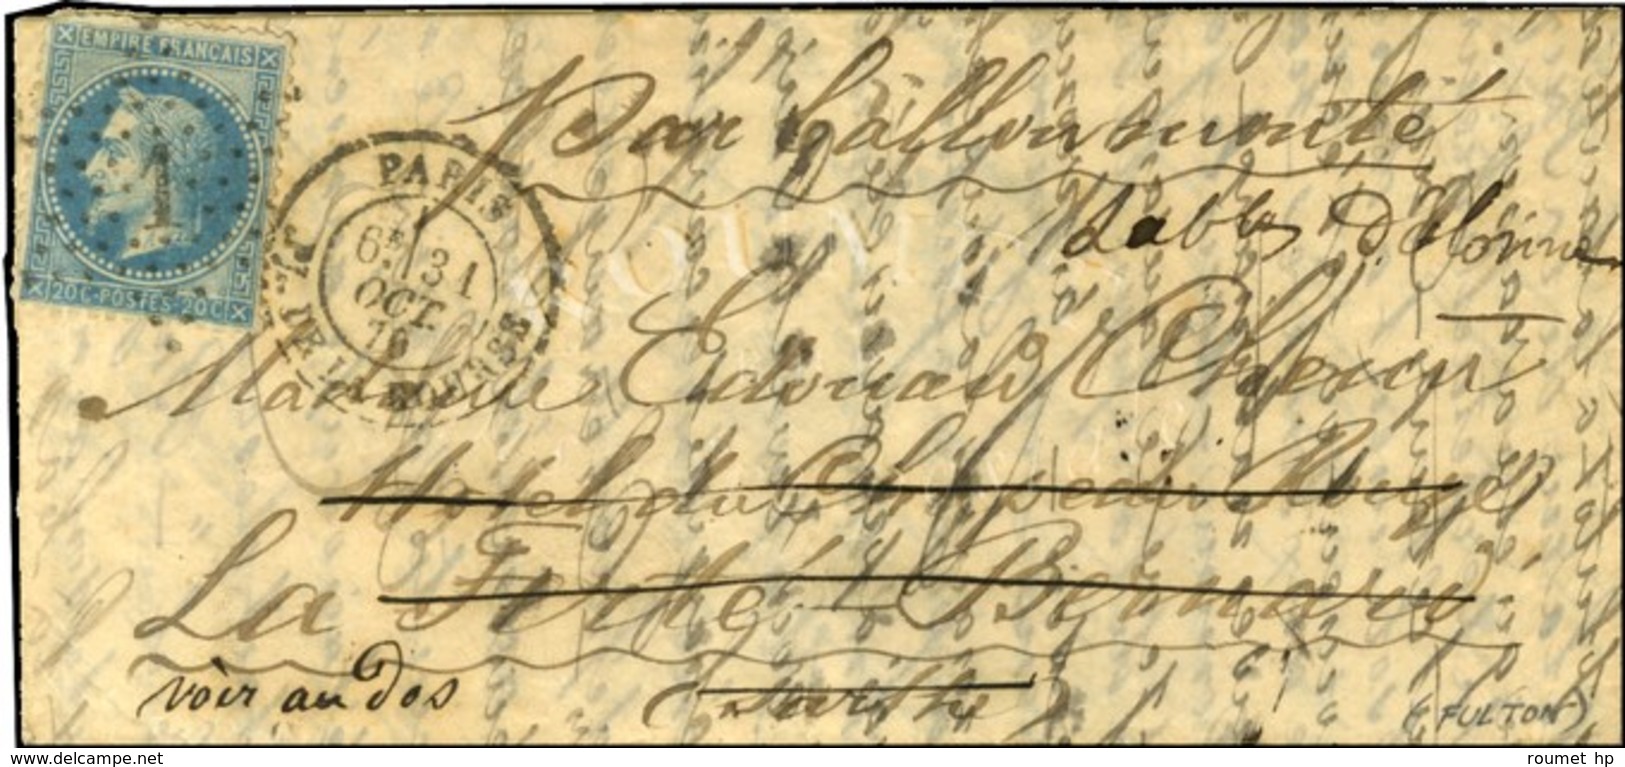 EMPIRE FRANÇAIS
1
20C-POSTES-20C
Par ballon monté
Sables D'Olonne
PARIS
6E 31
OCT.
70
PL. DE LA BOURSE
ROUMET
Madame Edouard
Hotel du Chapeau Rouge
La Ferté Bernard
Sarthe
voir au Dos
(FULTON)
www.delcampe.net
roumet hp